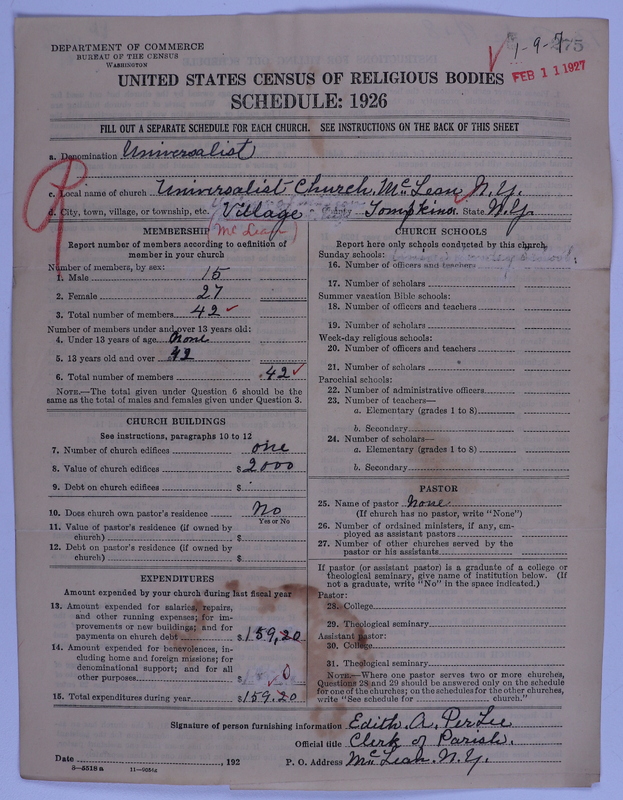 DEPARTMENT OF COMMERCE
BUREAU OF THE CENSUS
WASHINGTON
1-9-7
275
FEB 11 1927
UNITED STATES CENSUS OF RELIGIOUS BODIES
SCHEDULE: 1926
FILL OUT A SEPARATE SCHEDULE FOR EACH CHURCH. SEE INSTRUCTIONS ON THE BACK OF THIS SHEET
a. Denomination Universalist
c. Local name of church Universalist Church, McLean N.Y.
d. City, town, village, or township, etc. Village County Tompkins State N.Y.
(McLean)
MEMBERSHIP
Report number of members according to definition of
member in your church
Number of members, by sex:
1. Male 15
2. Female 27
3. Total number of members 42 ✓
Number of members under and over 13 years old:
4. Under 13 years of age none
5. 13 years old and over 42
6. Total number of members 42 ✓
NOTE.—The total given under Question 6 should be
same as the total of males and females given under Question 3.
CHURCH BUILDINGS
See instructions, paragraphs 10 to 12
7. Number of church edifices one
8. Value of church edifices $ 2000
9. Debt on church edifices $
10. Does church own pastor's residence No
Yes or No
11. Value of pastor's residence (if owned by
church) $
12. Debt on pastor's residence (if owned by
church) $
EXPENDITURES
Amount expended by your church during last fiscal year
13. Amount expended for salaries, repairs,
and other running expenses; for im-
provements or new buildings; and for
payments on church debt $ 159,20
14. Amount expended for benevolences, in-
cluding home and foreign missions; for
denominational support; and for all
other purposes $
15. Total expenditures during year $ 159.20
CHURCH SCHOOLS
Report here only schools conducted by this church
Sunday schools:
16. Number of officers and teachers
17. Number of scholars
Summer vacation Bible schools:
18. Number of officers and teachers
19. Number of scholars
Week-day religious schools:
20. Number of officers and teachers
21. Number of scholars
Parochial schools:
22. Number of administrative officers
23. Number of teachers—
a. Elementary (grades 1 to 8)
b. Secondary
24. Number of scholars—
a. Elementary (grades 1 to 8)
b. Secondary
PASTOR
25. Name of pastor None
(If church has no pastor, write "None")
26. Number of ordained ministers, if any, em-
ployed as assistant pastors
27. Number of other churches served by the
pastor or his assistants
If pastor (or assistant pastor) is a graduate of a college or
theological seminary, give name of institution below. (If
not a graduate, write "No" in the space indicated.)
Pastor:
28. College
29. Theological seminary
Assistant pastor:
30. College
31. Theological seminary
NOTE.—Where one pastor serves two or more churches,
Questions 28 and 29 should be answered only on the schedule
for one of the churches; on the schedules for the other churches,
write "See schedule for church."
Signature of person furnishing information Edith. A. PerLee
Official title Clerk of Parish.
Date , 192 P. O. Address McLean. N.Y.
8-5518 a